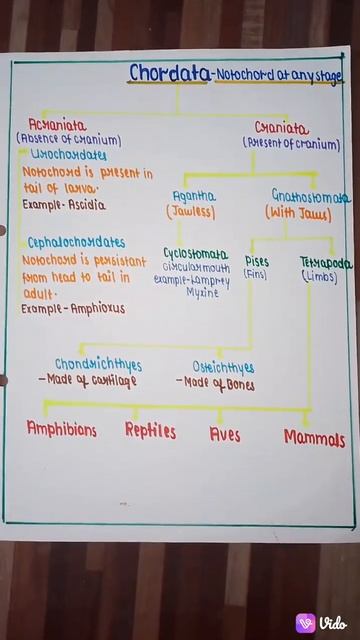 Chordata-Notochord at any stage
Acraniata
(Absence of cranium)
Craniata
(Present of cranium)
Urochordates
Notochord is present in
tail of larva.
Example- Ascidia
Agantha
(Jawless)
Gnathostomata
(With Jaws)
Cephalochordates
Notochord is persistant
from head to tail in
adult.
Example- Amphioxus
Cyclostomata
circularmouth
example-Lamprey
Myxine
Pises
(Fins)
Tetrapoda
(Limbs)
Chondrichthyes
-Made of cartilage
Osteichthyes
-Made of Bones
Amphibians
Reptiles
Aves
Mammals
Vido